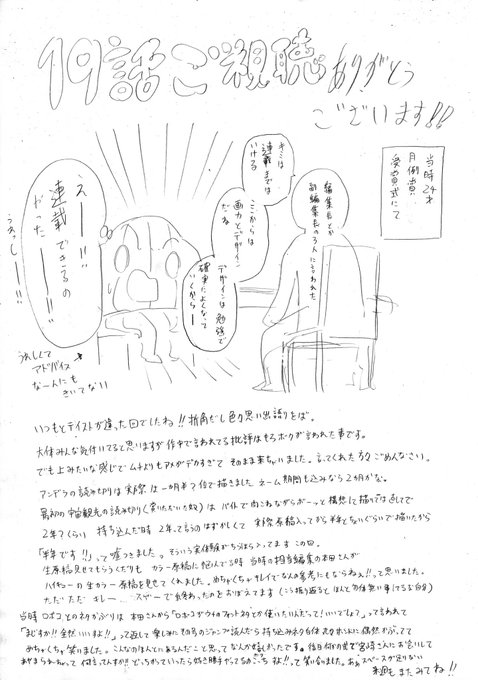 19話ご視聴ありがとう
ございます!!
当時24才
月例賞
受賞式にて
編集長とか
副編集長の3人に言われた
キミは
連載までは
いける
ここからは
画力とデザイン
だね
デザインは勉強で
確実によくなって
いくから―
えーーー!!
連載できるの
だったーーー!!
うれしくて
アドバイス
なーんにも
きいてない
いつもとテイストが違った回でしたね!!折角だし色々思い出語りをば。
大体みんな気付いてると思いますが作中で言われてる批評はもろボクが言われた事です。
でも上みたいな感じでムチよりもアメがデカすぎて そのまま来ちゃいました。言ってくれた方々ごめんなさい。
アンデラの読み切りは実際は一か月半位で描きました ネーム期間も込みなら2か月かな。
最初の 読み切り は バイトで肉こねながらボーッと構想して描いては返しで
2年?くらい 持ち込んだ時 2年って言うのはずかしくて 実際原稿入ってから半年とちいぐらいで描いたから
「半年です!!」って嘘つきました。そういう実体験がちらほら入ってます この回。
生原稿見せてもらうくだりも カラー原稿に悩んでる時 当時の担当編集の本田さんが
ハイキューの生カラー原稿を見せてくれました。めちゃくちゃキレイでなんの参考にもならねぇ!!って思いました。
ただただ キレー…スゲーで終わったのをおぼえてます
当時 ロボコ とのネタがぶりは 本田さんから「ロボコが とか使いたいんだって!いいでしょ?」って言われて
「まじすか!!全然いいすよ!!」って返して 楽しみに初号のジャンプ読んだら 持ち込みネタ自体 偶然かぶってて
めちゃくちゃ笑いました。こんなのほんとにあるんだ―こと思ってなんか嬉しかったです。後日何かの時で宮崎さんにお会いして
って笑い合いました。あぁスペースが足りない
来週もまたみてね!!